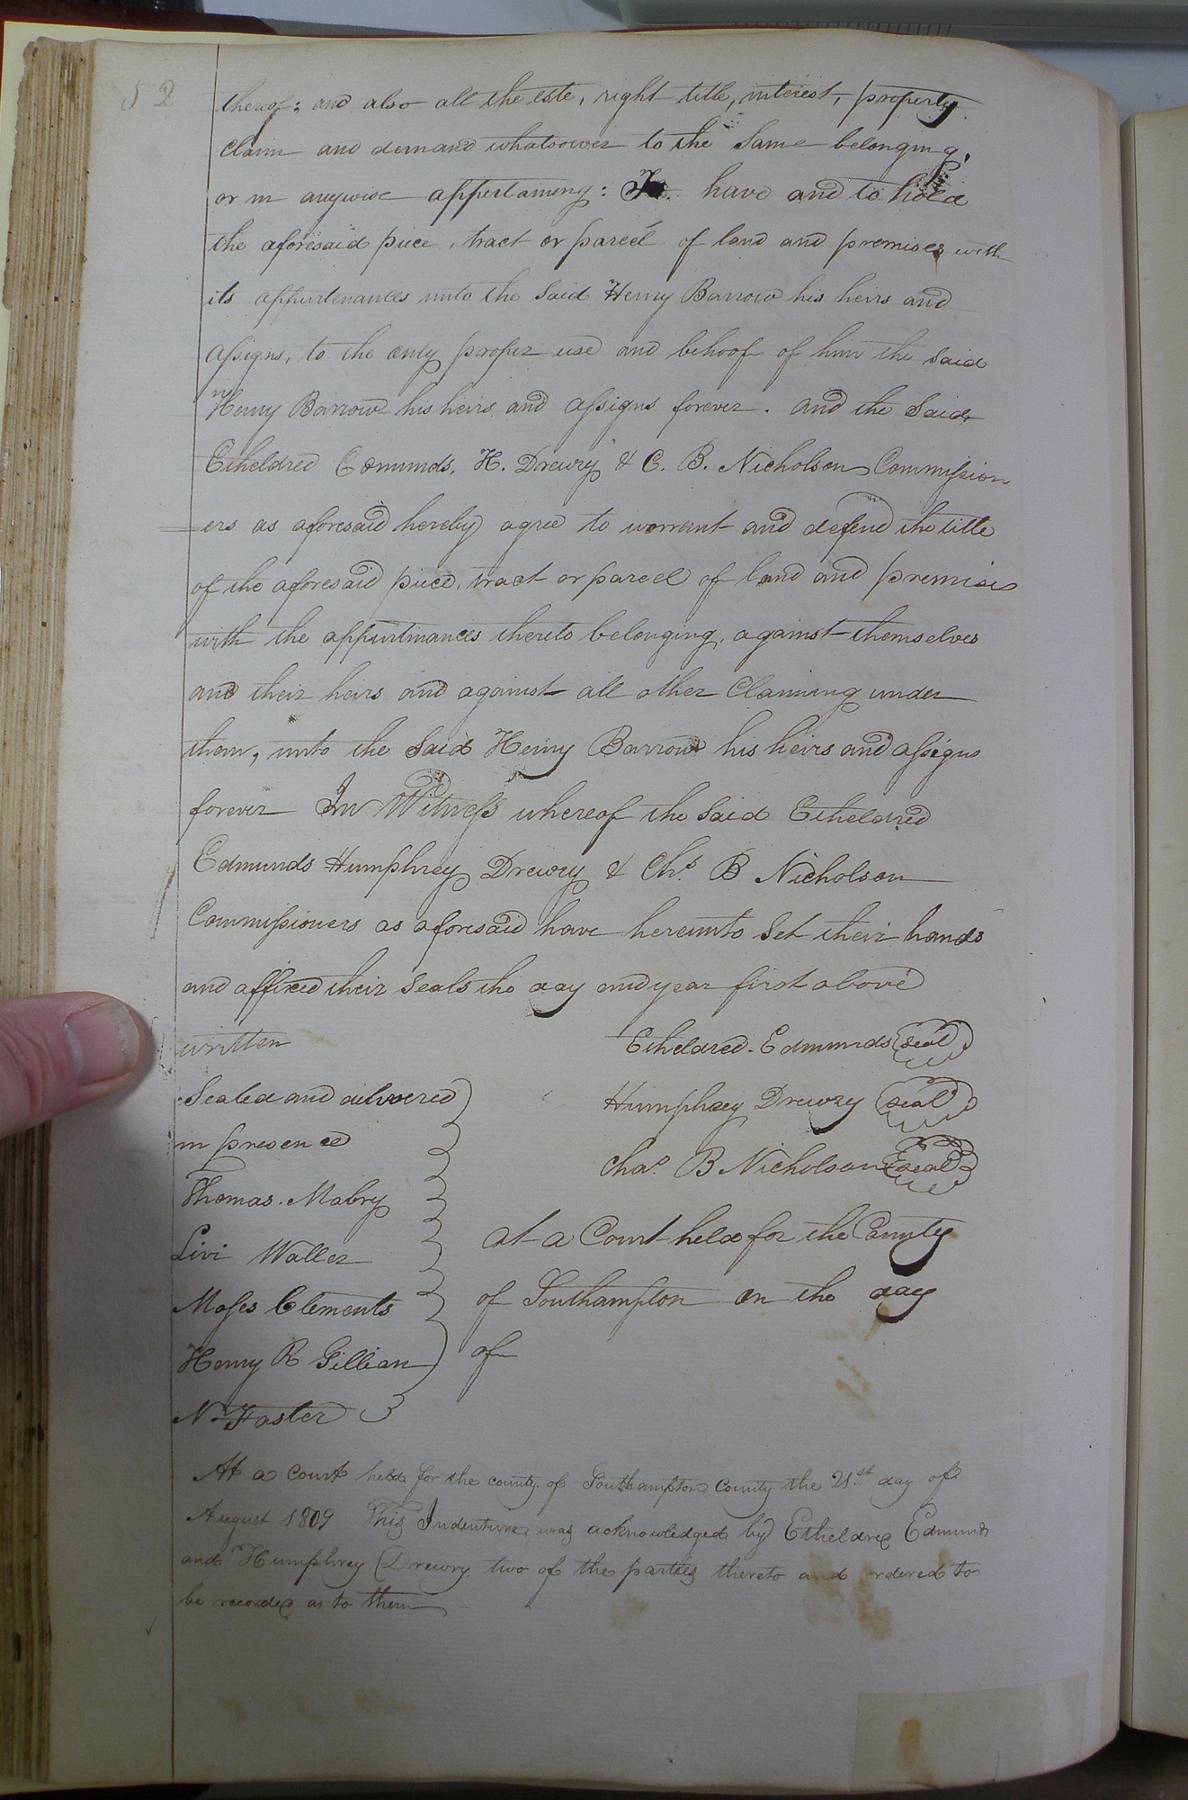 52
thereof; and also all the este, right title, interest, property
Claim and demand whatsoever to the Same belonging,
or in anywise appertaining: To have and to hold
the aforesaid piece, tract or parcel of land and premises with
its appurtenances unto the Said Henry Barrow his heirs and
assigns, to the only proper use and behoof of him the said
Henry Barrow his heirs and assigns forever. and the Said
Etheldred Edmunds, H. Drewry & C. B. Nicholson Commission
ers as aforesaid hereby agree to warrant and defend the title
of the aforesaid piece, tract or parcel of land and premises
with the appurtinances thereto belonging, against themselves
and their heirs and against all other Claiming under
them, unto the Said Henry Barrow his heirs and assigns
forever In Witness whereof the Said Etheldred
Edmunds Humphrey Drewry & Chs. B Nicholson
Commissioners as aforesaid have hereunto Set their hands
and affixed their Seals the day and year first above
written
Etheldred Edmunds Seal
Sealed and delivered
Humphrey Drewry Seal
in presence
Chas. B Nicholson Seal
Thomas Mabry
Livi Waller
Moses Clements
Henry R Gillian
N. Faster
at a Court held for the County
of Southampton on the day
of
At a Court held for the county of Southampton County the 21st day of
August 1809 This Indenture was acknowledged by Etheldred Edmunds
and Humphrey Drewry two of the parties thereto and ordered to
be recorded as to them